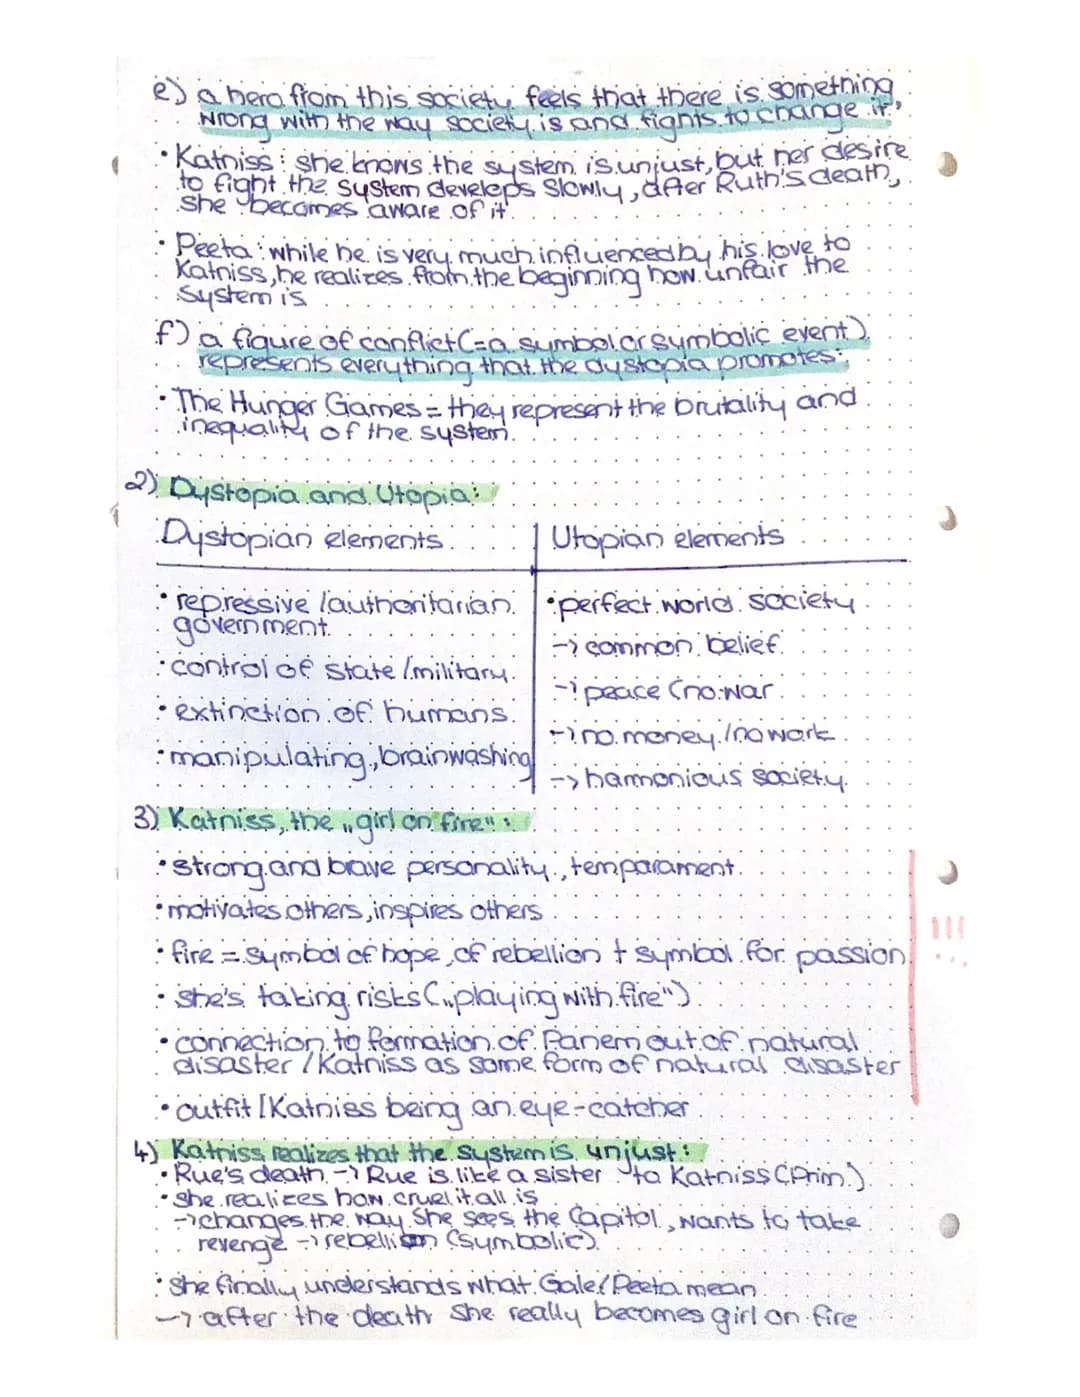 e) a hero from this society feels that there is something
wrong with the way society is and fights to change it,
• Katniss: she knows the system is unjust, but her desire
to fight the system develeps slowly, after Ruth's death,
she becomes aware of it.
• Peeta: while he is very much influenced by his love to
Katniss, he realizes from the beginning how unfair the
system is
f) a figure of conflict (= a symbol or symbolic event)
represents everything that the dystopia promotes:
• The Hunger Games = they represent the brutality and
inequality of the system.
2) Dystopia and Utopia:
Dystopian elements
Utopian elements
• repressive /authoritarian
government
• control of state /military
• extinction of humans
• manipulating, brainwashing
• perfect world society
-> common belief
-> peace (no war
-> no money /no work
-> harmonious society
3) Katniss, the „girl on fire":
• strong and brave personality, temparament
• motivates others, inspires others
• fire = symbol of hope, of rebellion + symbol for passion
• she's taking risks („playing with fire")
!!!
• connection to formation of Panem out of natural
disaster / Katniss as some form of natural disaster
• outfit / Katniss being an eye-catcher
4) Katniss realizes that the system is unjust:
• Rue's death -> Rue is like a sister to Katniss (Prim)
• she realizes how cruel it all is
-> changes the way she sees the Capitol, wants to take
revenge -> rebellion (symbolic)
• she finally understands what Gale/Peeta mean
-> after the death she really becomes girl on fire